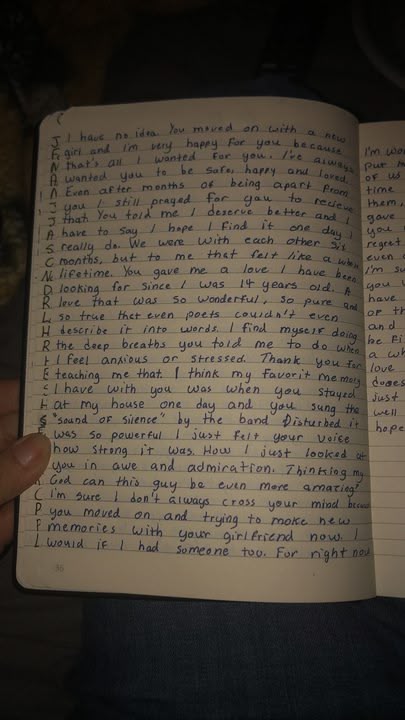 I have no idea. You moved on with a new
girl and I'm very happy for you because
that's all I wanted for you. I've always
wanted you to be safe, happy and loved.
Even after months of being apart from
you I still prayed for you to recieve
that. You told me I deserve better and I
have to say I hope I find it one day I
really do. We were with each other six
months, but to me that felt like a whole
lifetime. You gave me a love I have been
looking for since I was 14 years old. A
love that was so wonderful, so pure and
so true that even poets couldn't even
describe it into words. I find myself doing
the deep breaths you told me to do when
I feel anxious or stressed. Thank you for
teaching me that. I think my favorite memory
I have with you was when you stayed
at my house one day and you sung the
"sound of silence" by the band Disturbed it
was so powerful I just felt your voice
how strong it was. How I just looked at
you in awe and admiration. Thinking my
God can this guy be even more amazing?
I'm sure I don't always cross your mind because
you moved on and trying to make new
memories with your girlfriend now. I
would if I had someone too. For right now
36
I'm
put
of us
time
them,
gave
you
regret
even
I'm
you
have
of th
and
be
a wh
love
just
well
hope